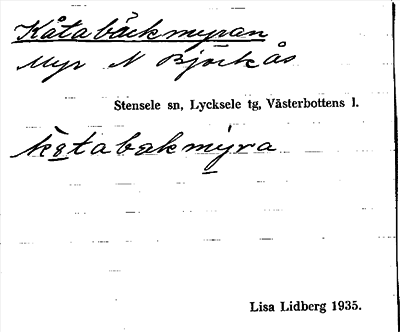 Kåtabäckmyran
Myr N Björkås
Stensele sn, Lycksele tg, Västerbottens l.
Lisa Lidberg 1935.